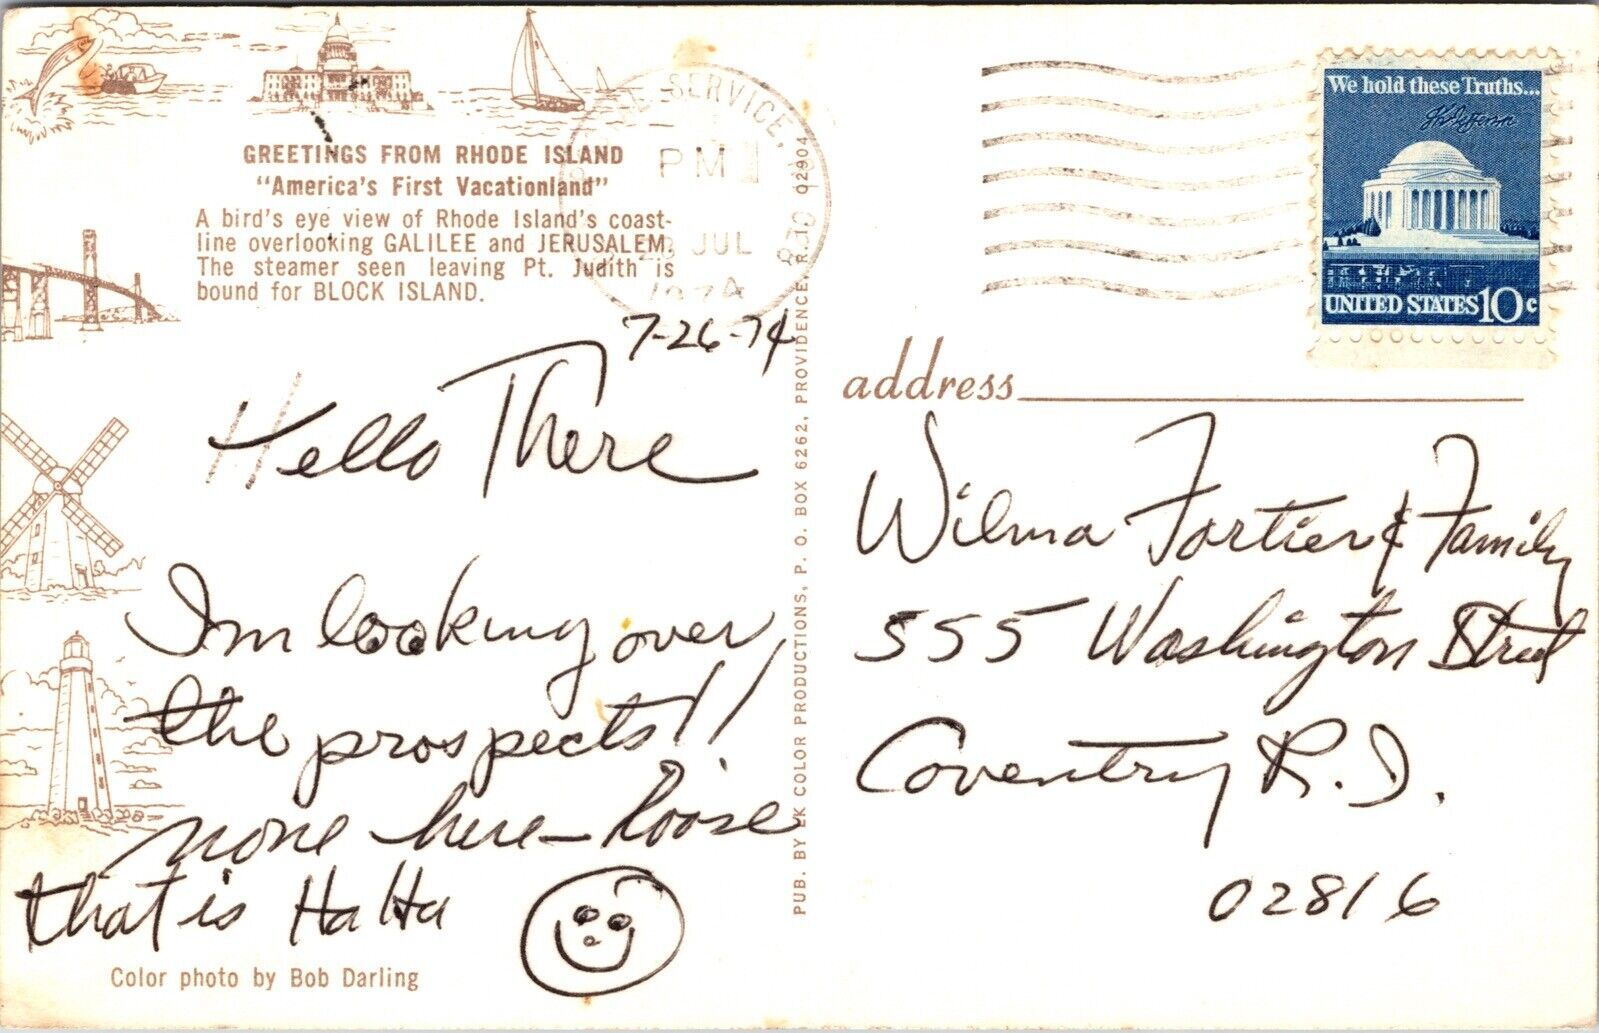 GREETINGS FROM RHODE ISLAND
"America's First Vacationland"
A bird's eye view of Rhode Island's coast-
line overlooking GALILEE and JERUSALEM.
The steamer seen leaving Pt. Judith is
bound for BLOCK ISLAND.
SERVICE,
PM
JUL
1974
02904
7-26-74
Hello There
Im looking over
the prospects!!
none here – loose
that is Ha Ha
Color photo by Bob Darling
PUB. BY EK COLOR PRODUCTIONS, P. O. BOX 6262, PROVIDENCE, R.I. 02904
We hold these Truths...
Th Jefferson
UNITED STATES 10c
address
Wilma Fortier & Family
555 Washington Street
Coventry R.I.
02816